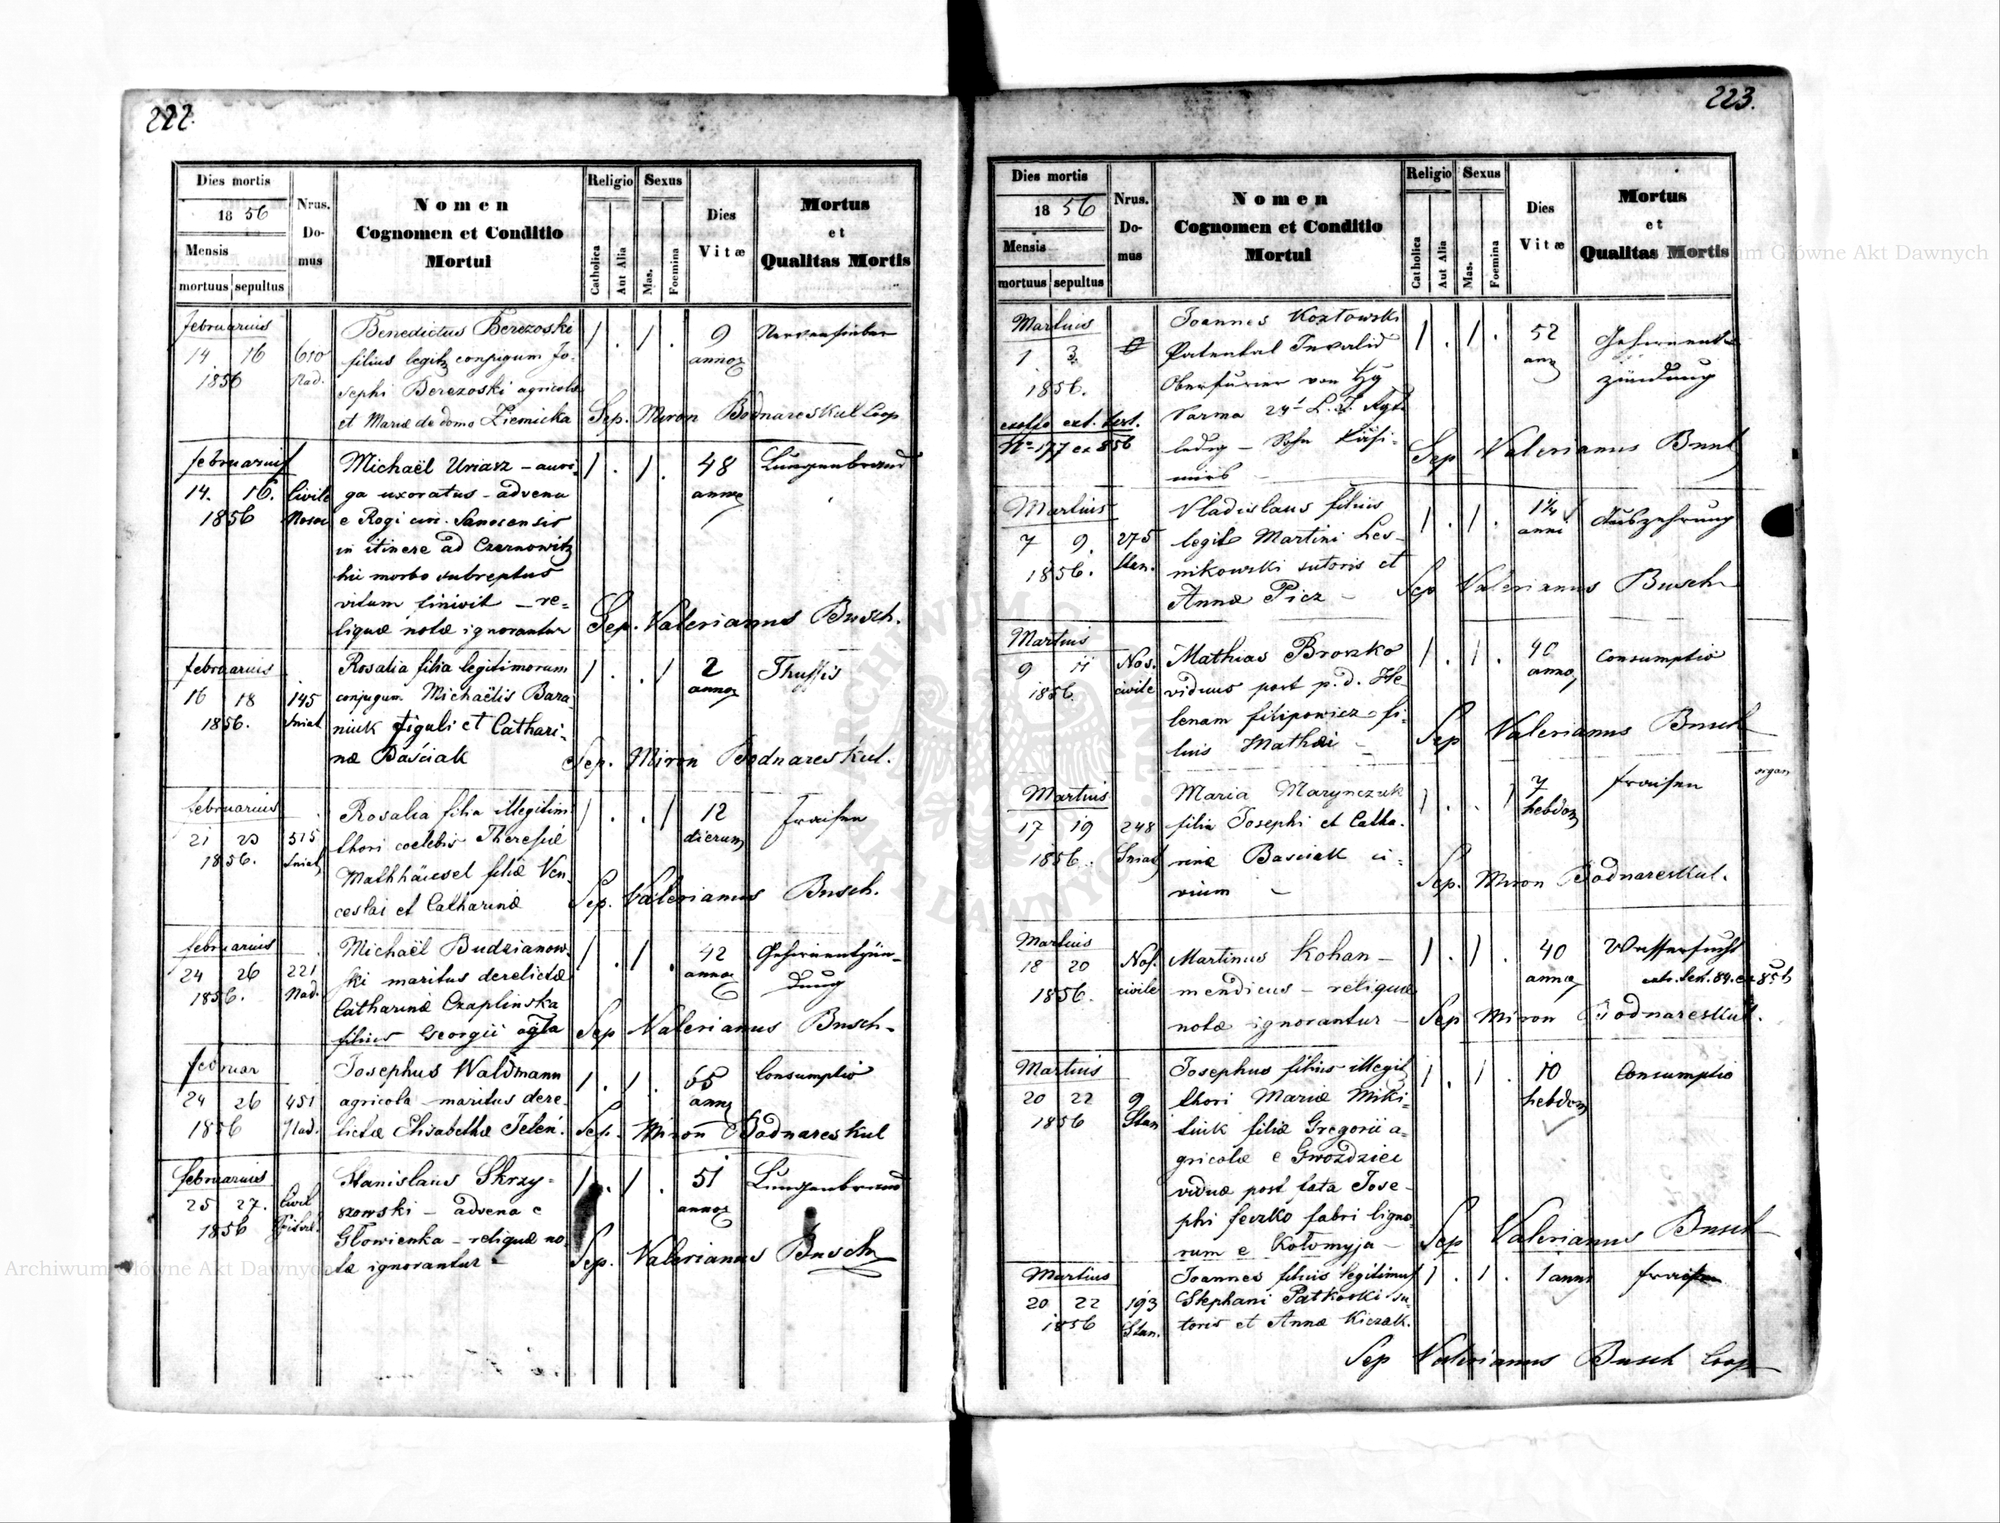 222.
Dies mortis
1856
Mensis
mortuus sepultus
Nrus.
Do-
mus
Nomen
Cognomen et Conditio
Mortui
Religio
Catholica
Aut Alia
Sexus
Mas.
Foemina
Dies
Vitæ
Mortus
et
Qualitas Mortis
februarius
14 16
1856
610
Nad.
Benedictus Berezoski
filius legit conjugum Jo-
sephi Berezoski agricolæ
et Mariæ de domo Ziemicka
1 . 1 .
9
annoz
Nervenfieber
Sep. Miron Bodnareskul Coop
februarius
14. 16.
1856
Civile
Nosoc
Michaël Uriasz - auri-
ga uxoratus - advena
e Rogi circ. Sanocensis
in itinere ad Czernowitz
hic morbo subreptus
vitam finivit - re-
liquæ notæ ignorantur
1 . 1 .
48
annoz
Lungenbrand
Sep. Valerianus Busch.
februarius
16 18
1856.
145
Sniat
Rosalia filia legitimorum
conjugum Michaëlis Bara-
niuk figuli et Cathari-
næ Baściak
1 . . 1
2
annoz
Thyffis
Sep. Miron Bodnareskul.
februarius
21 23
1856.
515
Sniat
Rosalia filia illegitim
thori coelebis Theresiæ
Mathhäiesel filiæ Ven-
ceslai et Catharinæ
1 . . 1
12
dierum
Fraisen
Sep. Valerianus Busch.
februarius
24 26
1856.
221
Nad.
Michaël Budzianow-
ski maritus derelictæ
Catharinæ Czaplinska
filius Georgii agla
1 . 1 .
42
annoz
Gehirnentzün-
dung
Sep Valerianus Busch-
februar
24 26
1856
451
Nad.
Josephus Waldmann
agricola - maritus dere-
lictæ Elisabethæ Jelen.
1 . 1 .
65
annoz
Consumptio
Sep. Miron Bodnareskul
februarius
25 27.
1856
Civil
Stanislaus Skrzy-
szowski - advena e
Głowienka - reliquæ no-
tæ ignorantur -
1 . 1 .
51
annoz
Lungenbrand
Sep. Valerianus Busch
223.
Dies mortis
1856
Mensis
mortuus sepultus
Nrus.
Do-
mus
Nomen
Cognomen et Conditio
Mortui
Religio
Catholica
Aut Alia
Sexus
Mas.
Foemina
Dies
Vitæ
Mortus
et
Qualitas Mortis
Martius
1 3.
1856.
Nº 177 ex 856
Joannes Kozłowski
Patental Invalid
Oberfurier von Hg
Parma 24t L. I. Rgt.
ledig - Sohn Kasi-
mirs -
1 . 1 .
52
anz
Gehirnent-
zündung
Sep Valerianus Busch
Martius
7 9.
1856.
275
Stan.
Vladislaus filius
legit Martini Les-
nikowski sutoris et
Annæ Picz -
1 . 1 .
1¼
anni
Auszehrung
Sep Valerianus Busch
Martius
9 11
1856
Nos.
civile
Mathias Broszko
viduus post p. d. He-
lenam filipowicz - fi-
lius Mathæi -
1 . 1 .
40
annoz
Consumptio
Sep Valerianus Busch
Martius
17 19
1856.
248
Sniat
Maria Marynczuk
filia Josephi et Catha-
rinæ Basciak ci-
vium -
1 . . 1
7
hebdom
fraisen
organ
Sep. Miron Bodnareskul.
Martius
18 20
1856.
Nos.
civile
Martinus Kohan -
mendicus - reliquæ
notæ ignorantur -
1 . 1 .
40
annoz
Wassersucht
Sep Miron Bodnareskul.
Martius
20 22
1856
9
Stan
Josephus filius illegit
thori Mariæ Miki-
tiuk filiæ Gregorii a-
gricolæ e Gwozdziec
viduæ post fata Jose-
phi feczko fabri ligno-
rum e Kołomyja -
1 . 1 .
10
hebdom
Consumptio
Sep Valerianus Busch
Martius
20 22
1856
193
Stan.
Joannes filius legitimus
Stephani Patkoski su-
toris et Annæ Kiczak.
1 . 1 .
1 anni
fraisen
Sep Valerianus Busch Coop
Archiwum Główne Akt Dawnych